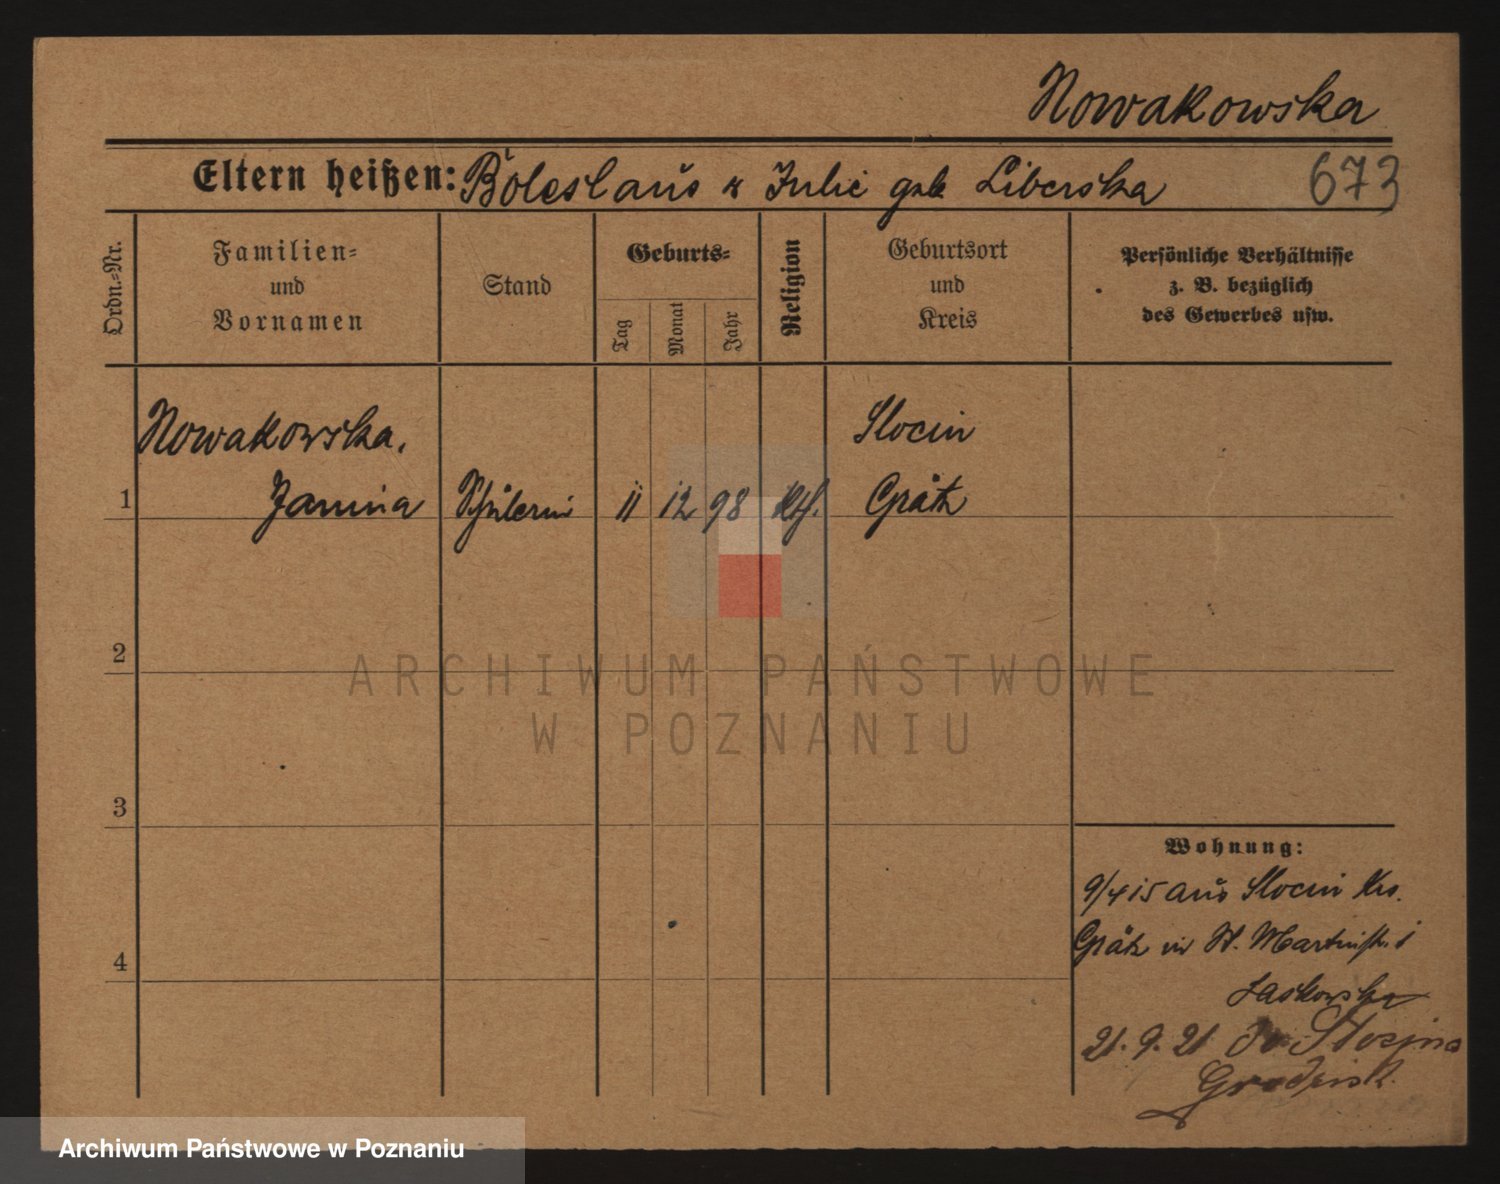 Nowakowska
Eltern heißen: Boleslaus u Julie geb Liberska 673
Ordn.-Nr.
Familien-
und
Vornamen
Stand
Geburts-
Tag
Monat
Jahr
Religion
Geburtsort
und
Kreis
Persönliche Verhältnisse
z. B. bezüglich
des Gewerbes usw.
Nowakowska, Slocin
1 Janina Schülerin 11 12 98 kth. Grätz
2
3
4
Wohnung:
9/4 15 aus Slocin Krs.
Grätz in St. Martinstr. 1
Laskowska
21. 9. 21 Slocina
Grodzisk.
ARCHIWUM PAŃSTWOWE
W POZNANIU
Archiwum Państwowe w Poznaniu